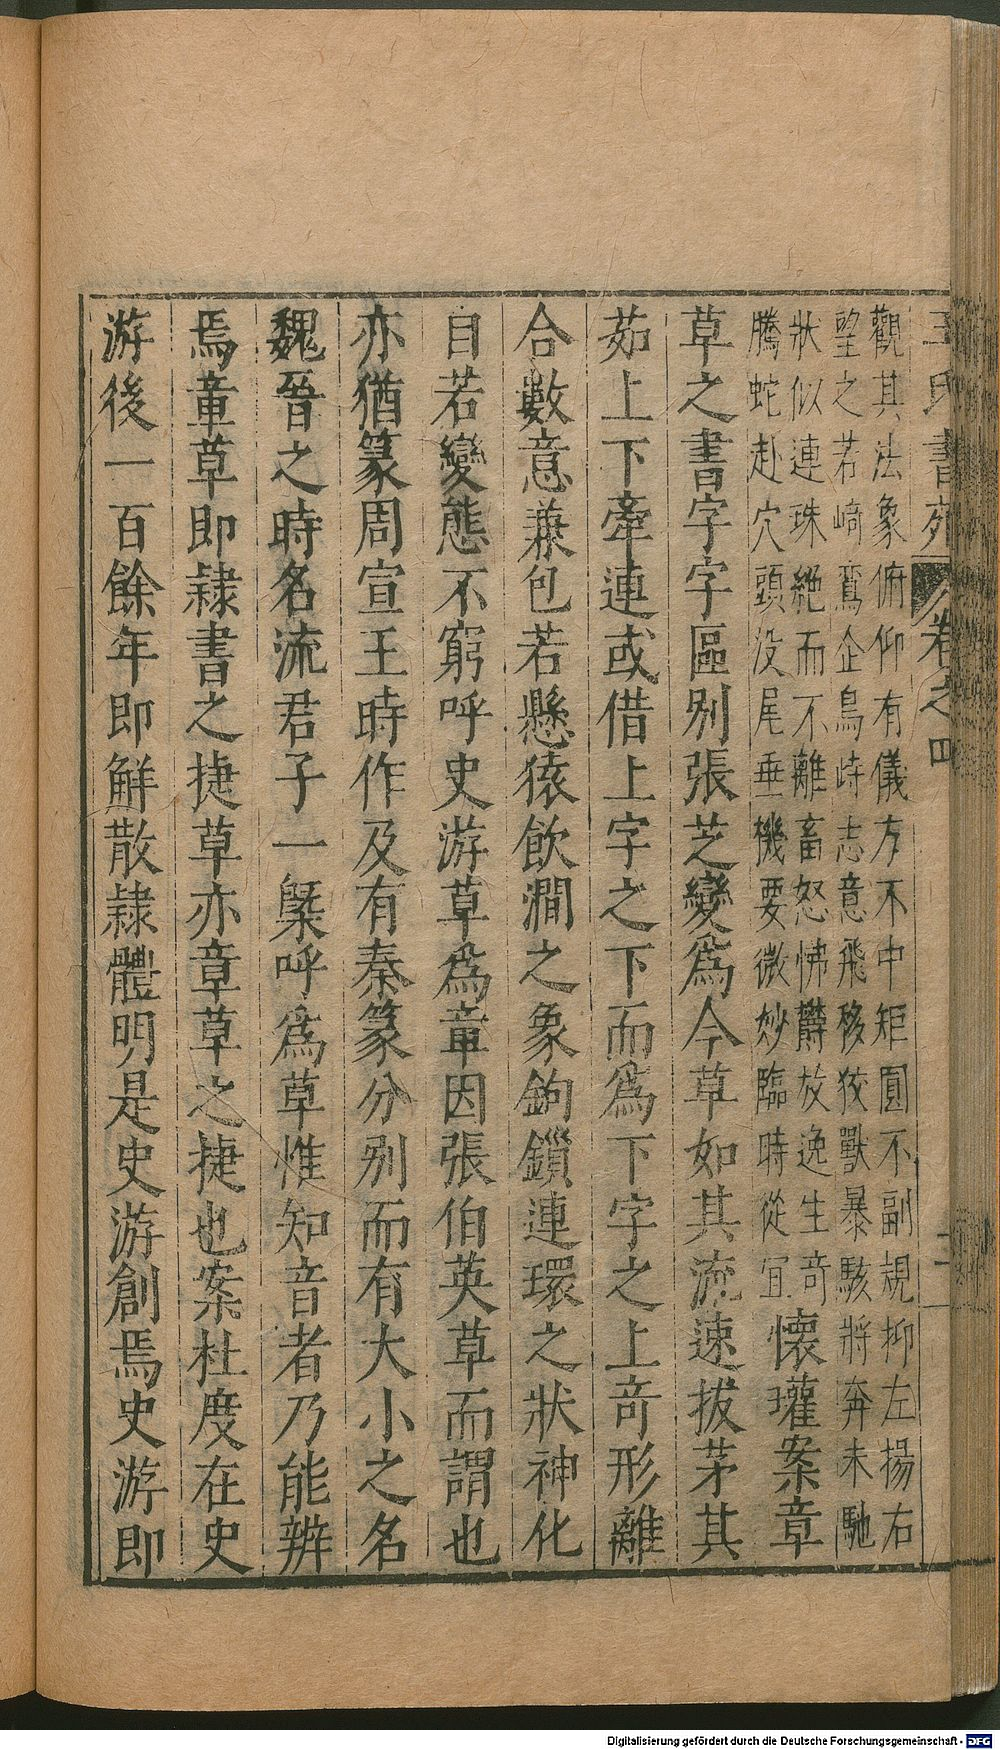 王氏書苑 卷之四
觀其法象俯仰有儀方不中矩圓不副規抑左揚右
望之若崎鸞企鳥峙志意飛移狡獸暴駭將奔未馳
狀似連珠絶而不離畜怒怫欝放逸生奇
騰蛇赴穴頭没尾垂機要微妙臨時從宜
懷瓘案章
草之書字字區别張芝變爲今草如其流速拔茅其
茹上下牽連或借上字之下而爲下字之上竒形離
合數意兼包若懸猿飲澗之象鉤鎖連環之狀神化
自若變態不窮呼史游草爲章因張伯英草而謂也
亦猶篆周宣王時作及有秦篆分别而有大小之名
魏晉之時名流君子一槩呼爲草惟知音者乃能辨
焉章草即隸書之捷草亦章草之捷也案杜度在史
游後一百餘年即解散隸體明是史游創焉史游即
Digitalisierung gefördert durch die Deutsche Forschungsgemeinschaft - DFG